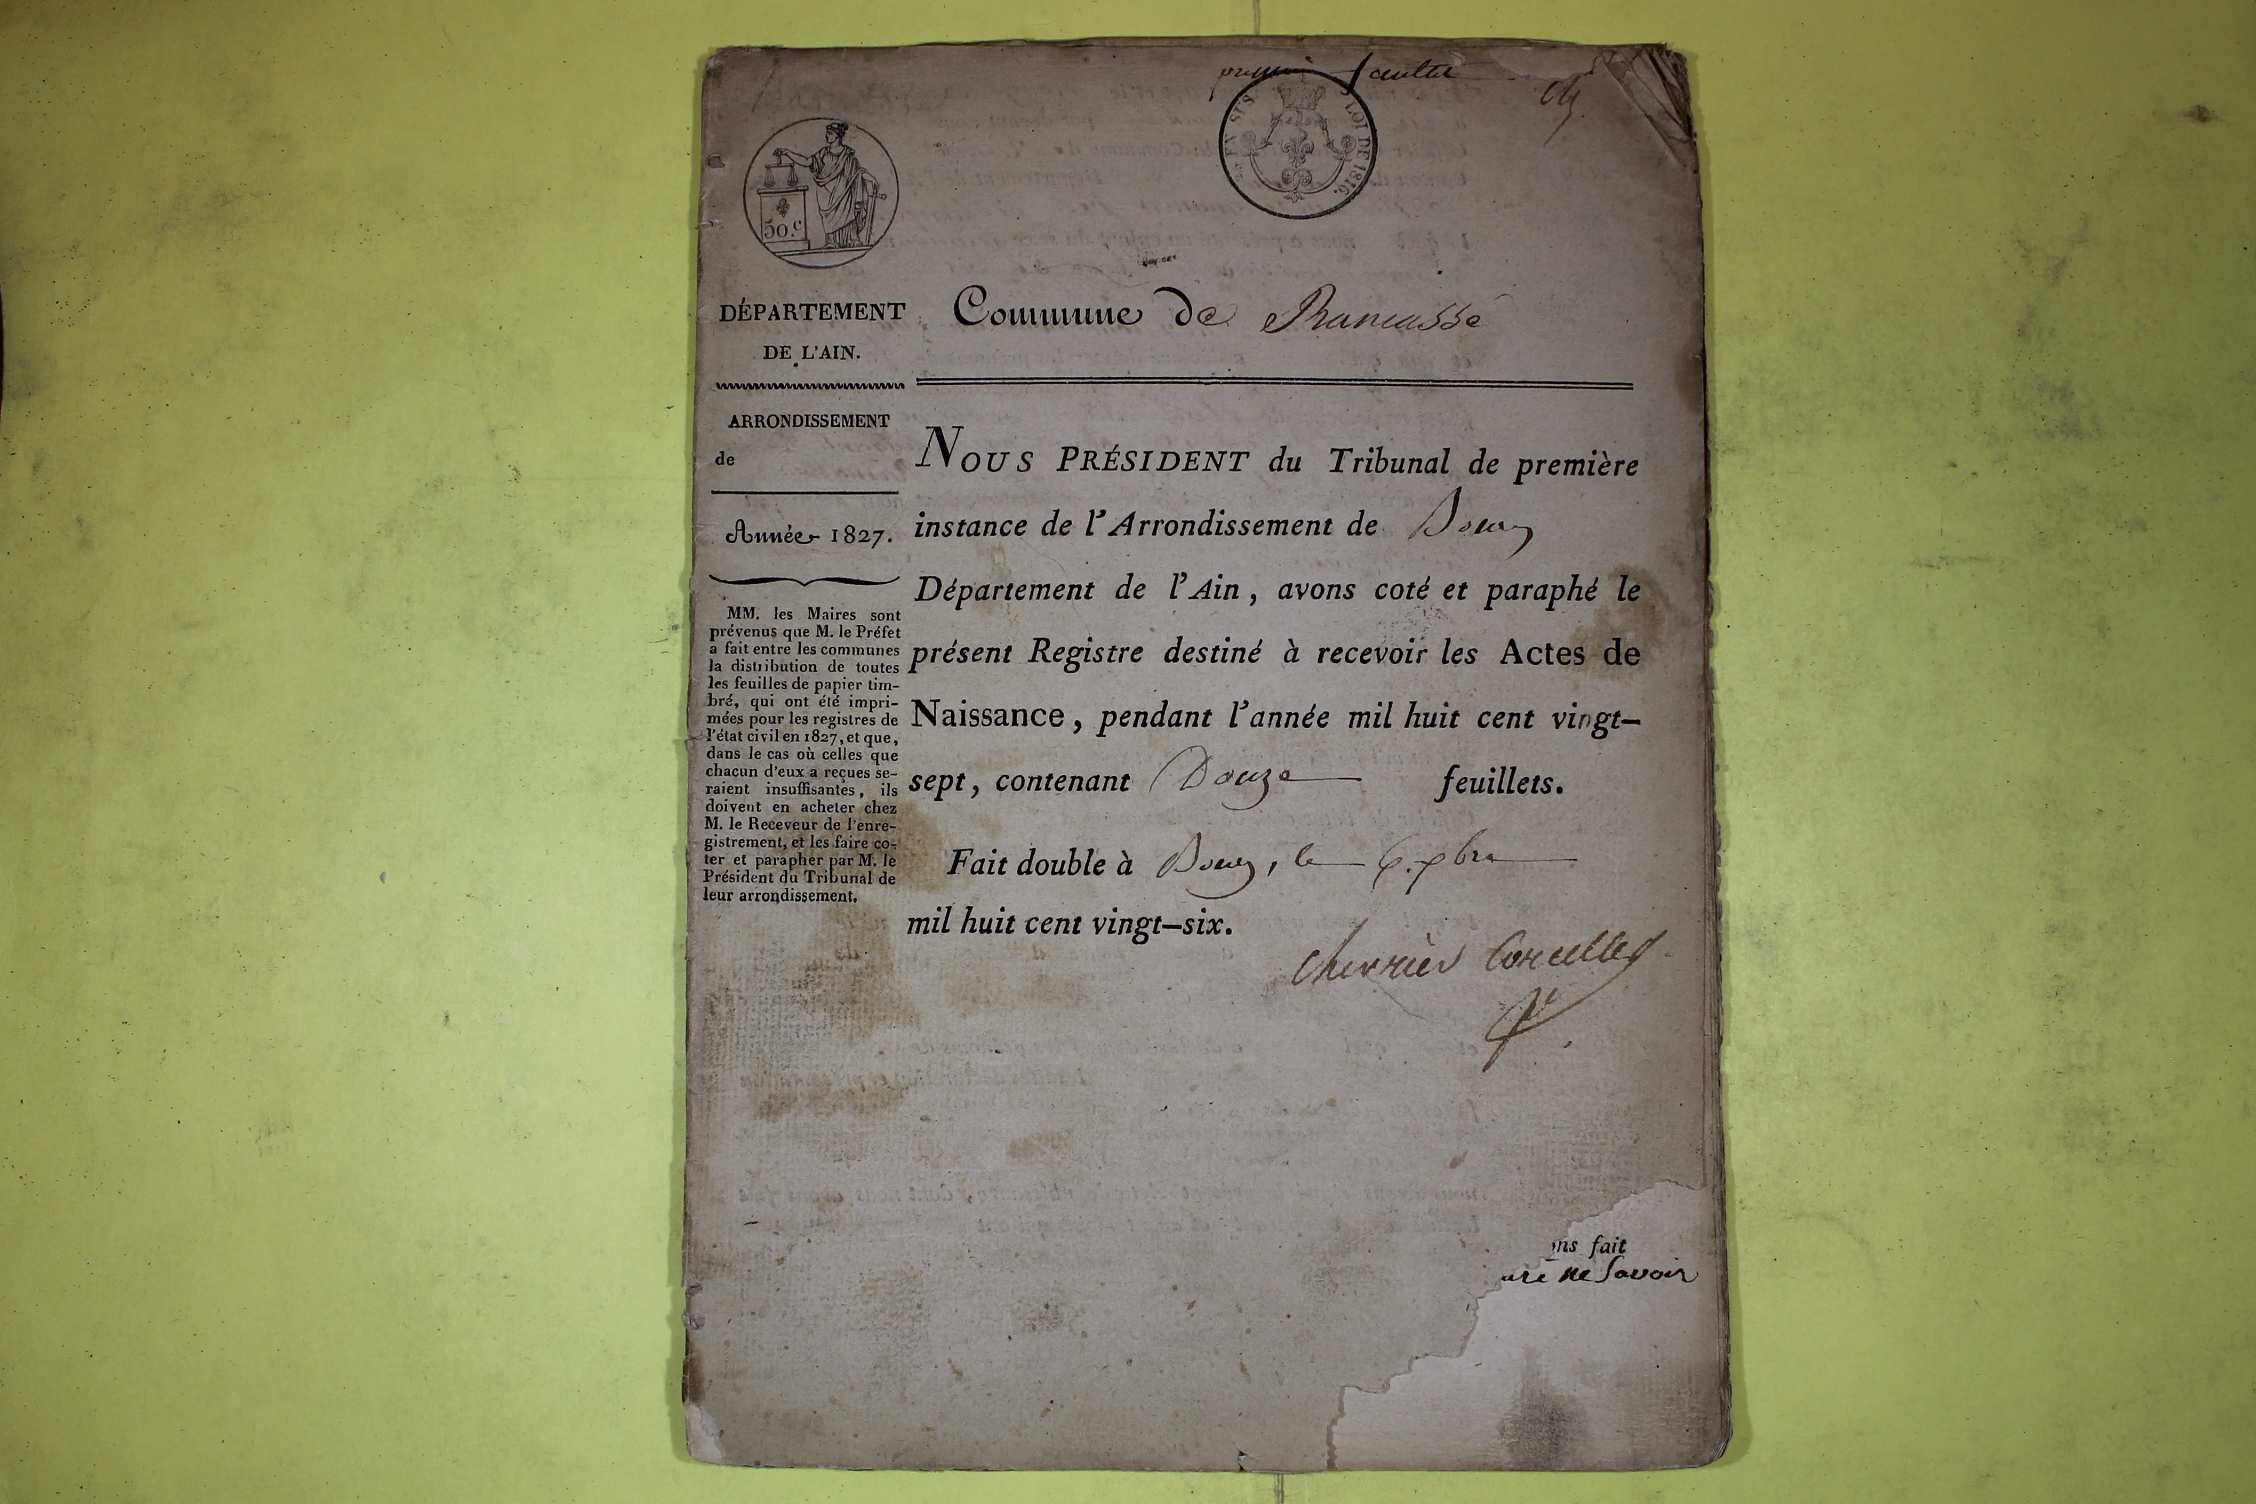 premier feuillet
EN SUS
LOI DE 1816.
50.c
DÉPARTEMENT
DE L'AIN.
ARRONDISSEMENT
de
Année 1827.
MM. les Maires sont
prévenus que M. le Préfet
a fait entre les communes
la distribution de toutes
les feuilles de papier tim-
bré, qui ont été impri-
mées pour les registres de
l'état civil en 1827, et que,
dans le cas où celles que
chacun d'eux a reçues se-
raient insuffisantes, ils
doivent en acheter chez
M. le Receveur de l'enre-
gistrement, et les faire co-
ter et parapher par M. le
Président du Tribunal de
leur arrondissement.
Commune de Ramasse
NOUS PRÉSIDENT du Tribunal de première
instance de l'Arrondissement de Bourg
Département de l'Ain, avons coté et paraphé le
présent Registre destiné à recevoir les Actes de
Naissance, pendant l'année mil huit cent vingt-
sept, contenant Douze feuillets.
Fait double à Bourg, le 6. xbre
mil huit cent vingt-six.
ns fait
ure ne Savoir